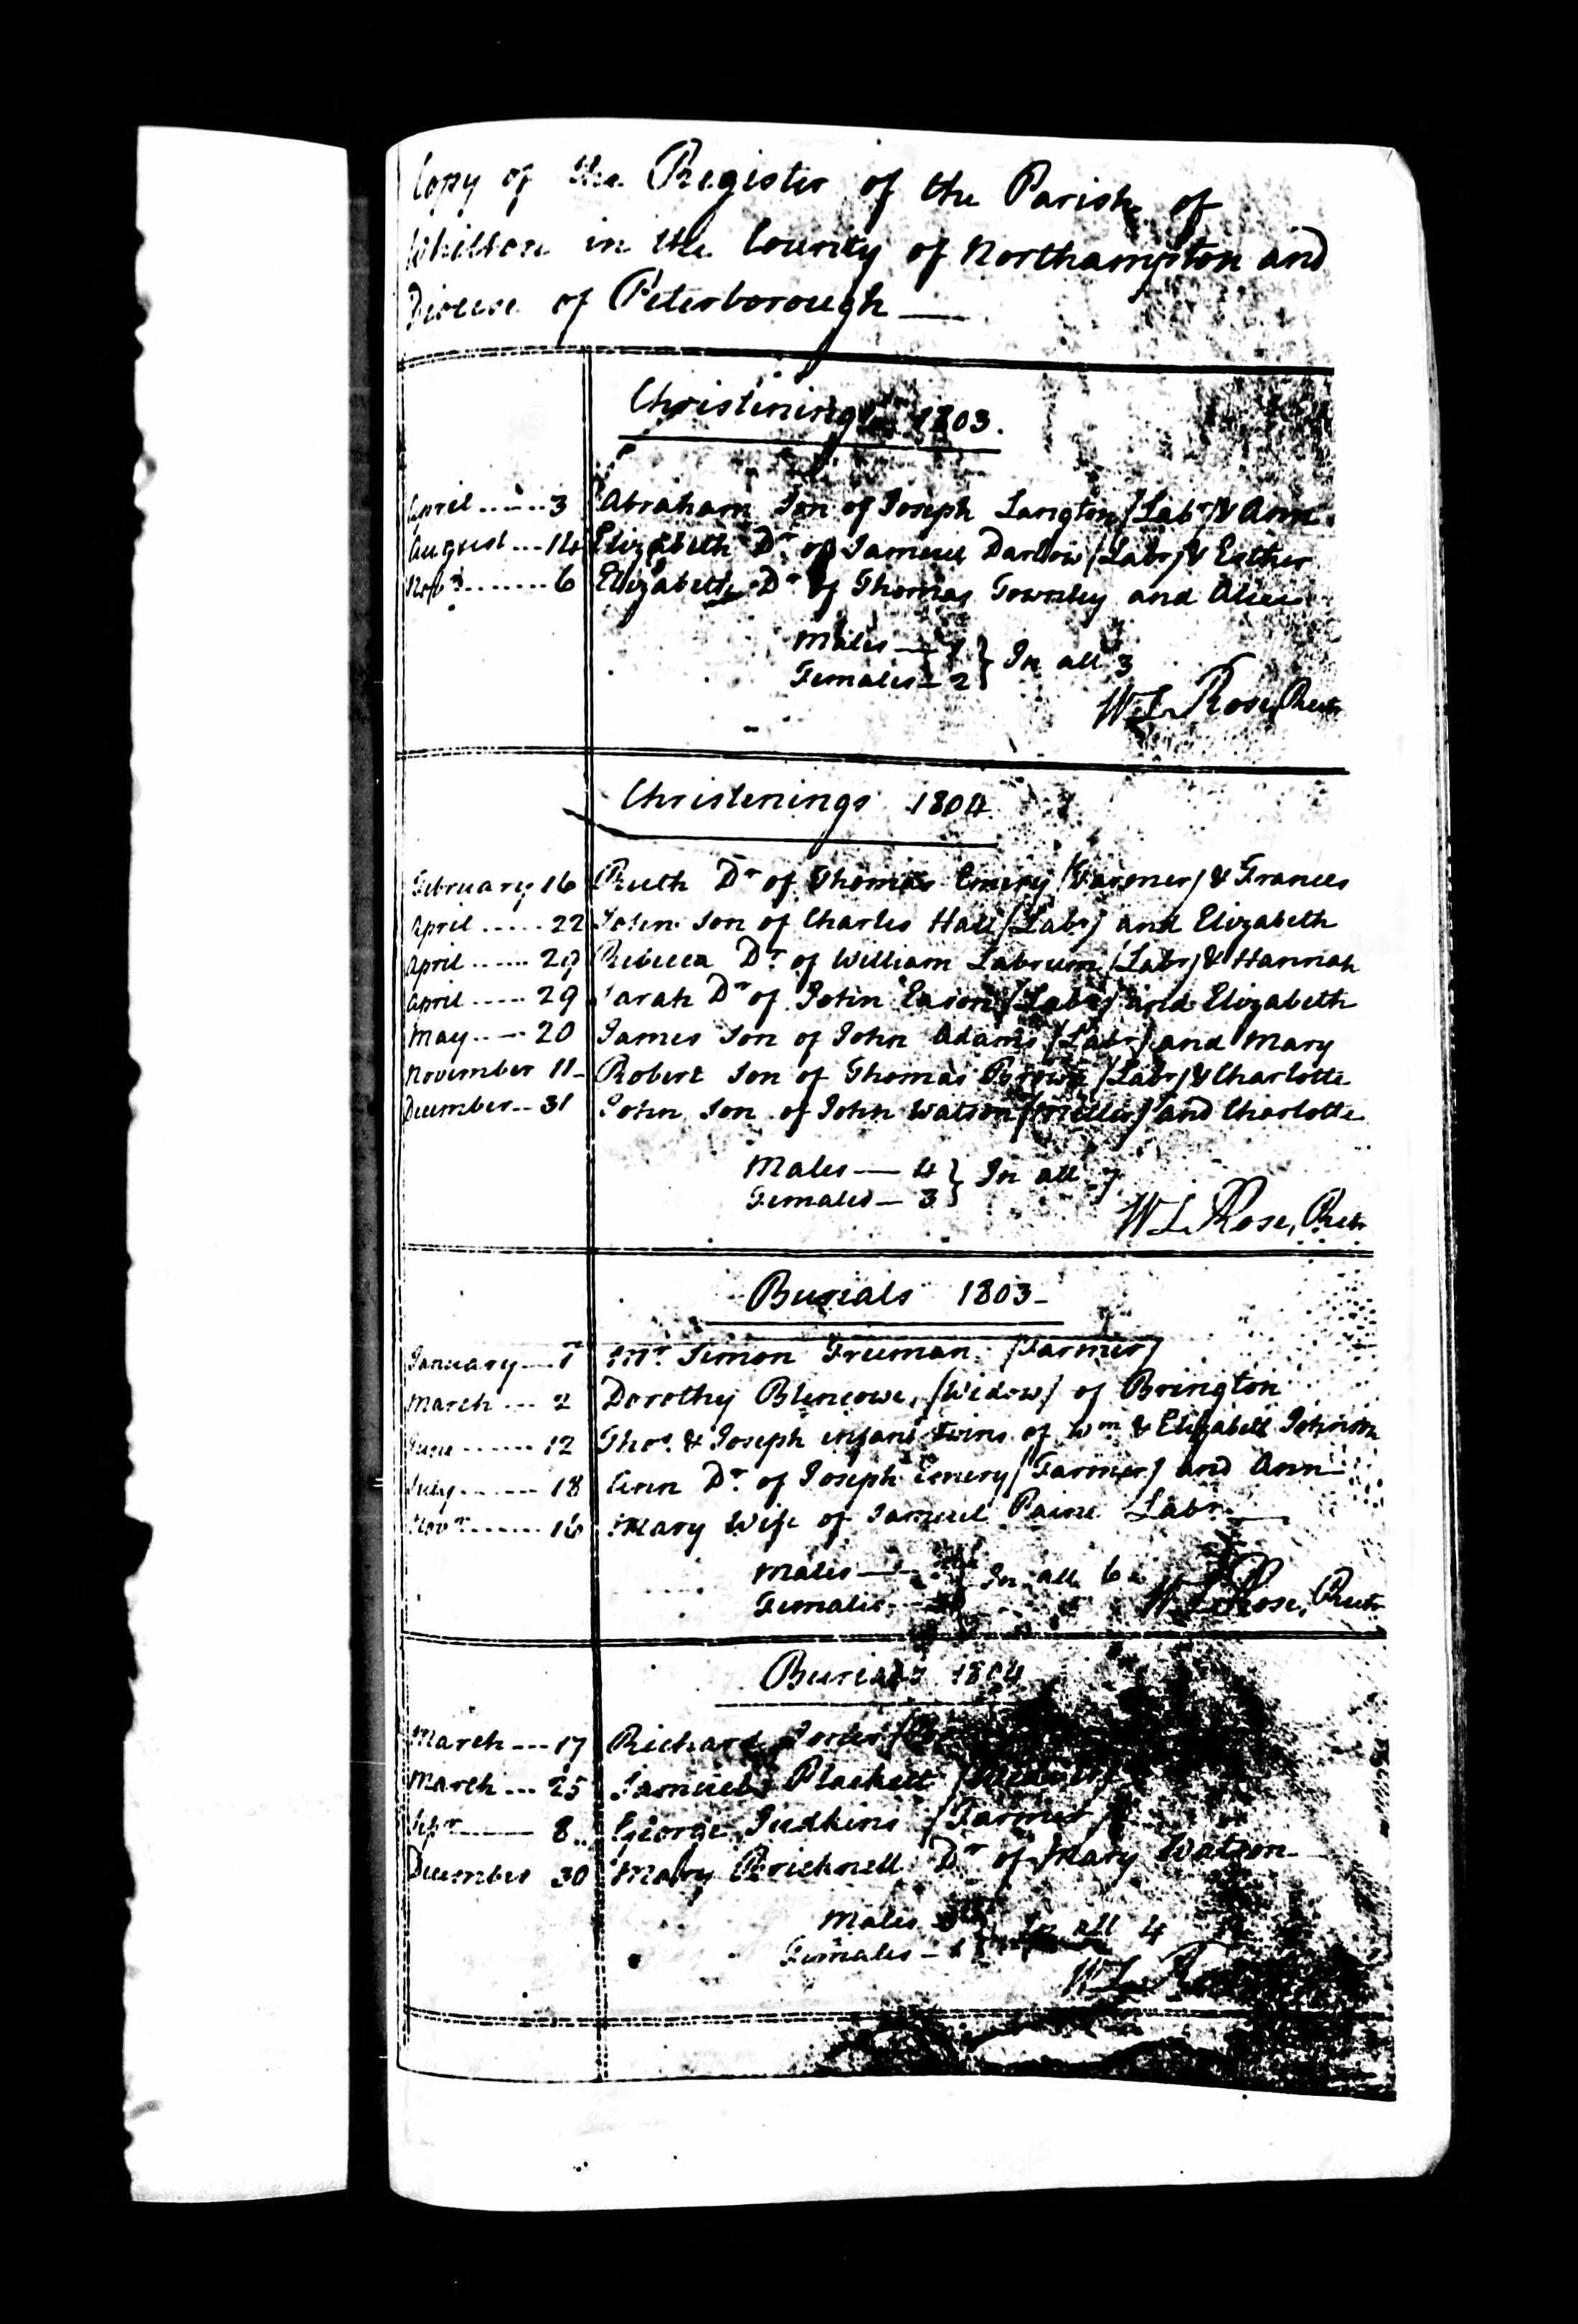 Copy of the Register of the Parish of
Whilton in the County of Northampton and
Diocese of Peterborough —
Christenings 1803.
April ..... 3 Abraham Son of Joseph Langton (Labr) & Ann
August ... 14 Elizabeth Dr of Samuel Darlow (Labr) & Esther
Novr ....... 6 Elizabeth Dr of Thomas Townley and Alice
Males — 1 } In all 3
Females — 2
W L Rose, Rectr
Christenings 1804
February 16 Ruth Dr of Thomas Emery (Farmer) & Frances
April ..... 22 John Son of Charles Hall (Labr) and Elizabeth
April ...... 29 Rebecca Dr of William Labrum (Labr) & Hannah
April ..... 29 Sarah Dr of John Eason (Labr) and Elizabeth
May .. — 20 James Son of John Adams (Labr) and Mary
November 11 – Robert Son of Thomas Brown (Labr) & Charlotte
December .. 31 John Son of John Watson (Miller) and Charlotte
Males — 4 } In all 7
Females — 3
W L Rose, Rectr
Burials 1803 –
January — 1 Mr Simon Freeman (Farmer)
March ... 2 Dorothy Blencowe, (Widow) of Brington
June ...... 12 Thos & Joseph infant Twins of Wm & Elizabeth Johnson
July ....... 18 Ann Dr of Joseph Emery (Farmer) and Ann
Novr ...... 16 Mary Wife of Samuel Paine Labr
Males — } In all 6
Females
W L Rose, Rectr
Burials 1804
March ... 17 Richard
March ... 25 Samuel Plackett
Sepr —— 8 .. George Judkins (Farmer)
December 30 Mary Bricknell Dr of Mary Watson
Males } In all 4
Females – 1
W L